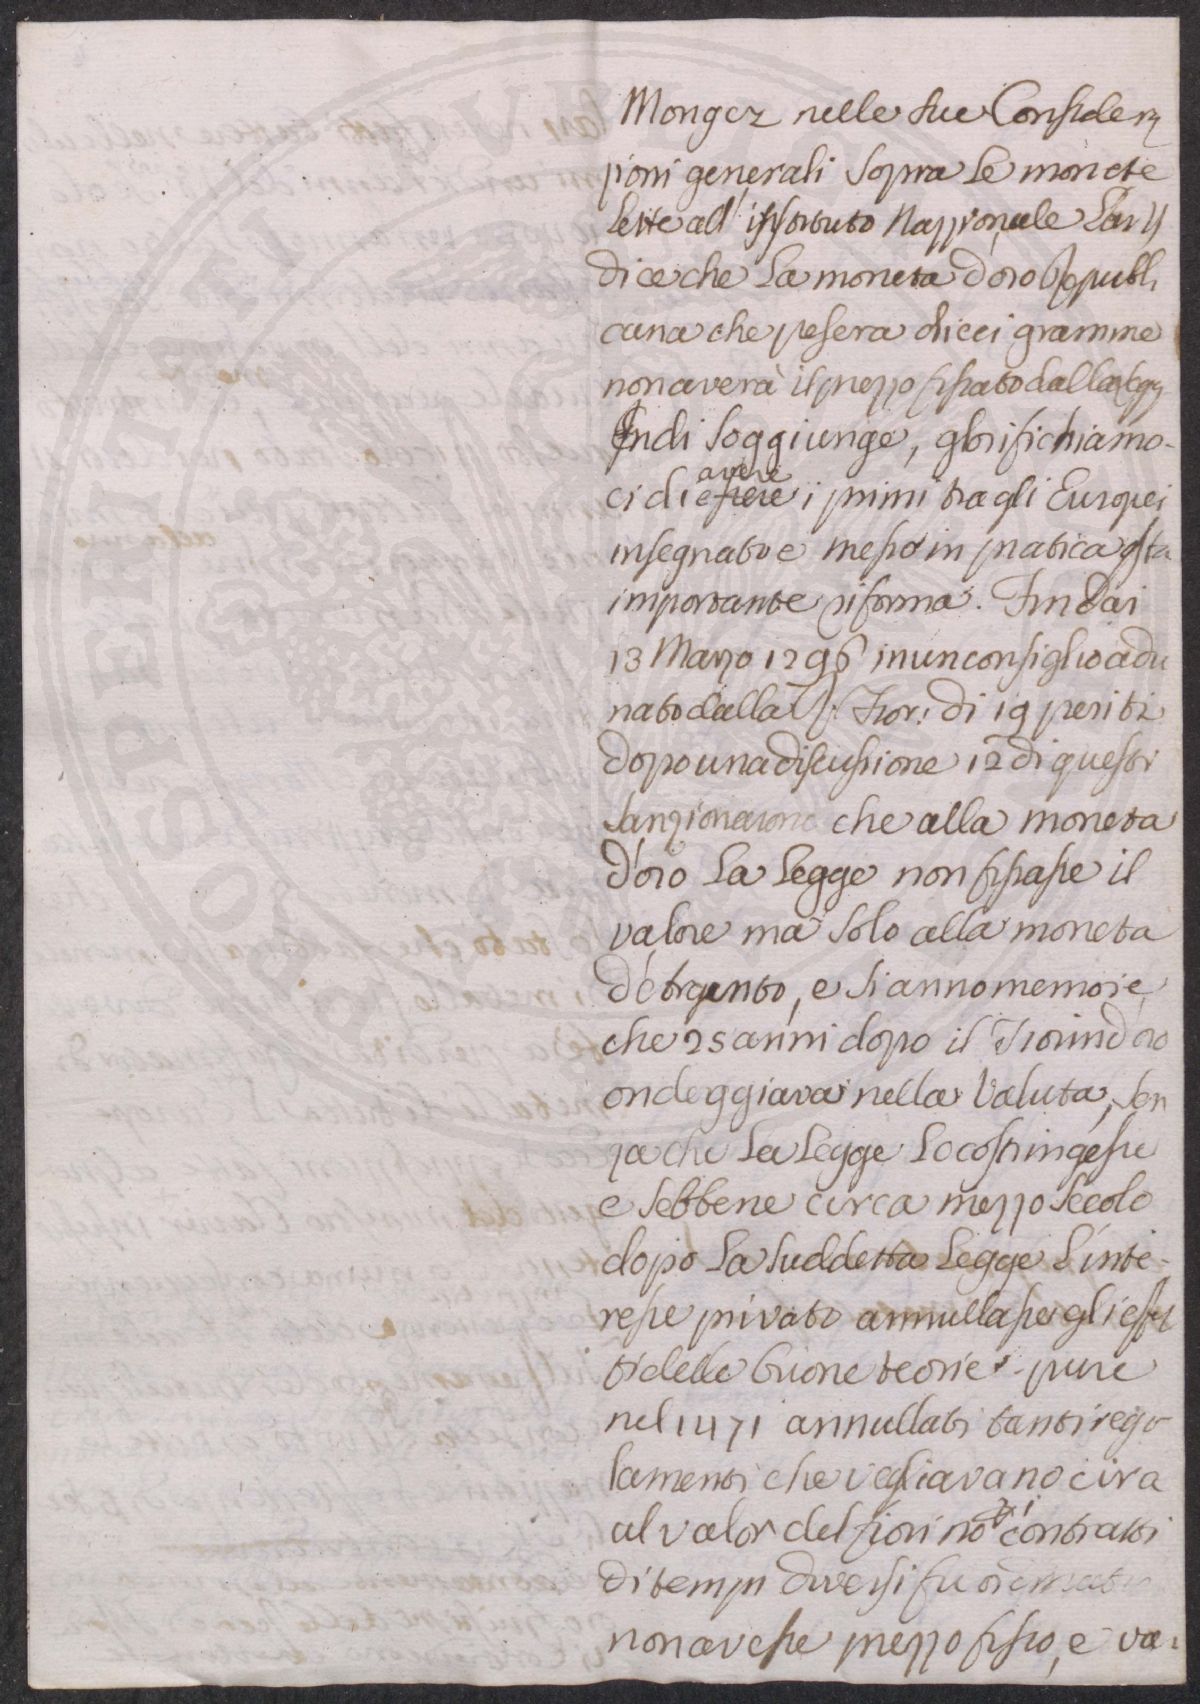 Mongez nelle sue Considera
zioni generali sopra le monete
lette all'Isstituto Nazzionale
dice che la moneta d'oro Republi
cana che pesera dieci gramme
non averà il prezzo fissato dalla legg
Indi soggiunge, glorifichiamo-
ci di essere avere i primi tra gli Europei
insegnato e messo in pratica qsta
importante riforma. Fin dai
13 Marzo 1296 in un consiglio adu
nato dalla R. Fior. di 19 periti
dopo una discussione 12 di questi
sanzionarono che alla moneta
d'oro la legge non fissasse il
valore ma solo alla moneta
d'Argento, e si anno memorie
che 25 anni dopo il Fiorin d'oro
ondeggiava nella valuta, sen
za che la legge lo costringesse
e sebbene circa mezzo secolo
dopo la suddetta legge l'inte-
resse privato annullasse gli effet
ti delle buone teorie pure
nel 1471 annullati tanti rego
lamenti che vegliavano circa
al valor del fiorino contratti
di tempi diversi fu
non avesse prezzo fisso, e va-